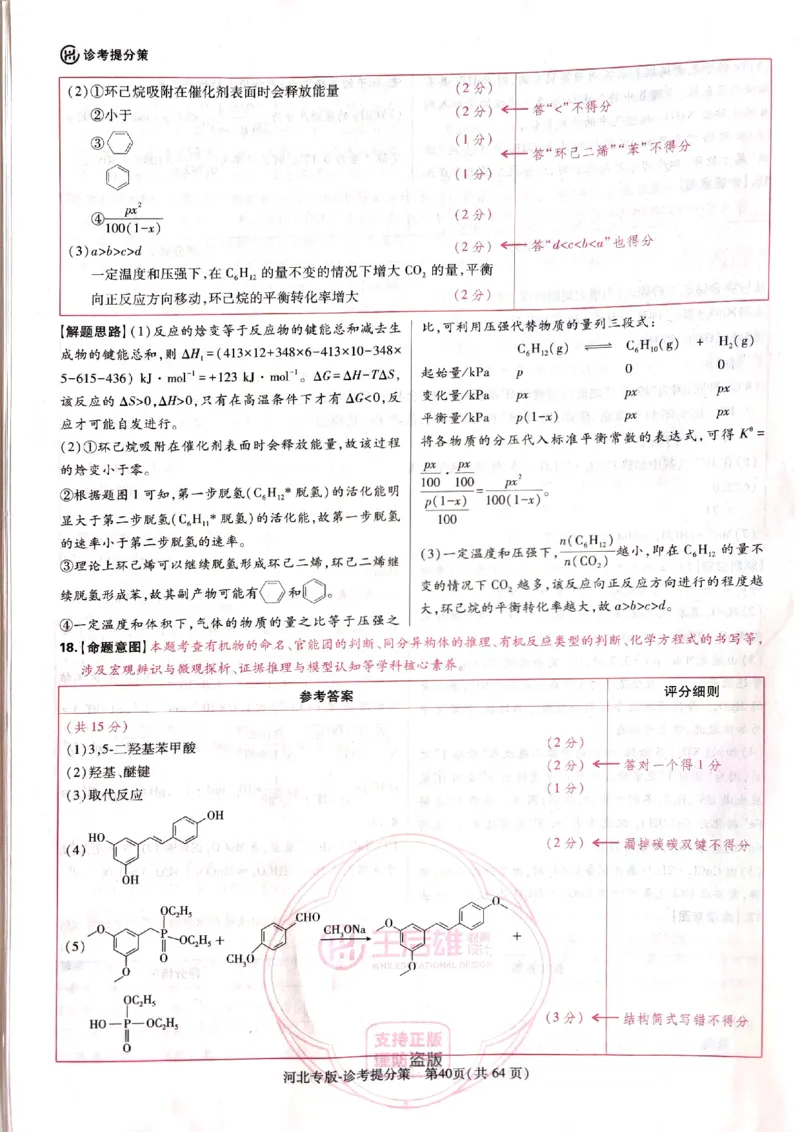 诊考提分策
(2)①环己烷吸附在催化剂表面时会释放能量 (2分)
②小于 (2分) ← 答“<”不得分
③ (1分)
← 答“环己二烯”“苯”不得分
(1分)
④ px²/100(1-x) (2分)
(3)a>b>c>d (2分) ← 答“d<c<b<a”也得分
一定温度和压强下,在 C₆H₁₂ 的量不变的情况下增大 CO₂ 的量,平衡
向正反应方向移动,环己烷的平衡转化率增大 (2分)
【解题思路】(1)反应的焓变等于反应物的键能总和减去生
成物的键能总和,则 ΔH₁=(413×12+348×6-413×10-348×
5-615-436) kJ·mol⁻¹=+123 kJ·mol⁻¹。ΔG=ΔH-TΔS,
该反应的 ΔS>0,ΔH>0,只有在高温条件下才有 ΔG<0,反
应才可能自发进行。
(2)①环己烷吸附在催化剂表面时会释放能量,故该过程
的焓变小于零。
②根据题图1可知,第一步脱氢(C₆H₁₂*脱氢)的活化能明
显大于第二步脱氢(C₆H₁₁*脱氢)的活化能,故第一步脱氢
的速率小于第二步脱氢的速率。
③理论上环己烯可以继续脱氢形成环己二烯,环己二烯继
续脱氢形成苯,故其副产物可能有 和 。
④一定温度和体积下,气体的物质的量之比等于压强之
比,可利用压强代替物质的量列三段式:
C₆H₁₂(g) ⇌ C₆H₁₀(g) + H₂(g)
起始量/kPa p 0 0
变化量/kPa px px px
平衡量/kPa p(1-x) px px
将各物质的分压代入标准平衡常数的表达式,可得 K^θ=
(px/100 · px/100)/(p(1-x)/100) = px²/100(1-x)。
(3)一定温度和压强下, n(C₆H₁₂)/n(CO₂) 越小,即在 C₆H₁₂ 的量不
变的情况下 CO₂ 越多,该反应向正反应方向进行的程度越
大,环己烷的平衡转化率越大,故 a>b>c>d。
18.【命题意图】本题考查有机物的命名、官能团的判断、同分异构体的推理、有机反应类型的判断、化学方程式的书写等,
涉及宏观辨识与微观探析、证据推理与模型认知等学科核心素养。
参考答案 评分细则
(共15分)
(1)3,5-二羟基苯甲酸 (2分)
(2)羟基、醚键 (2分) ← 答对一个得1分
(3)取代反应 (1分)
OH
HO
(4) (2分) ← 漏掉碳碳双键不得分
OH
OC₂H₅ CHO O
O P OC₂H₅ + CH₃ONa O
(5) O CH₃O +
O O
OC₂H₅
HO—P—OC₂H₅ (3分) ← 结构简式写错不得分
O
王后雄 教测设计
WHX EDUCATIONAL DESIGN
支持正版
谨防盗版
河北专版-诊考提分策 第40页(共64页)